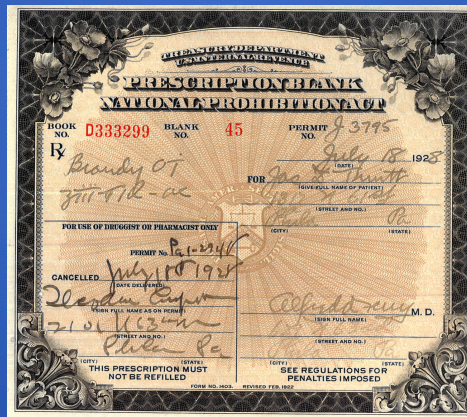 TREASURY DEPARTMENT
U.S. INTERNAL REVENUE
PRESCRIPTION BLANK
NATIONAL PROHIBITION ACT
BOOK NO. D333299 BLANK NO. 45 PERMIT NO. J 3795
July 18 1928
(DATE)
Rx
Brandy
FOR Jas
(GIVE FULL NAME OF PATIENT)
(STREET AND NO.)
Phila Pa
(CITY) (STATE)
FOR USE OF DRUGGIST OR PHARMACIST ONLY
PERMIT No. Pa
CANCELLED July 18 1928
(DATE DELIVERED)
(SIGN FULL NAME AS ON PERMIT)
(STREET AND NO.)
Phila Pa
(CITY) (STATE)
THIS PRESCRIPTION MUST
NOT BE REFILLED
Alfred M. D.
(SIGN FULL NAME)
(STREET AND NO.)
(CITY) (STATE)
SEE REGULATIONS FOR
PENALTIES IMPOSED
FORM NO. 1403. REVISED FEB. 1922